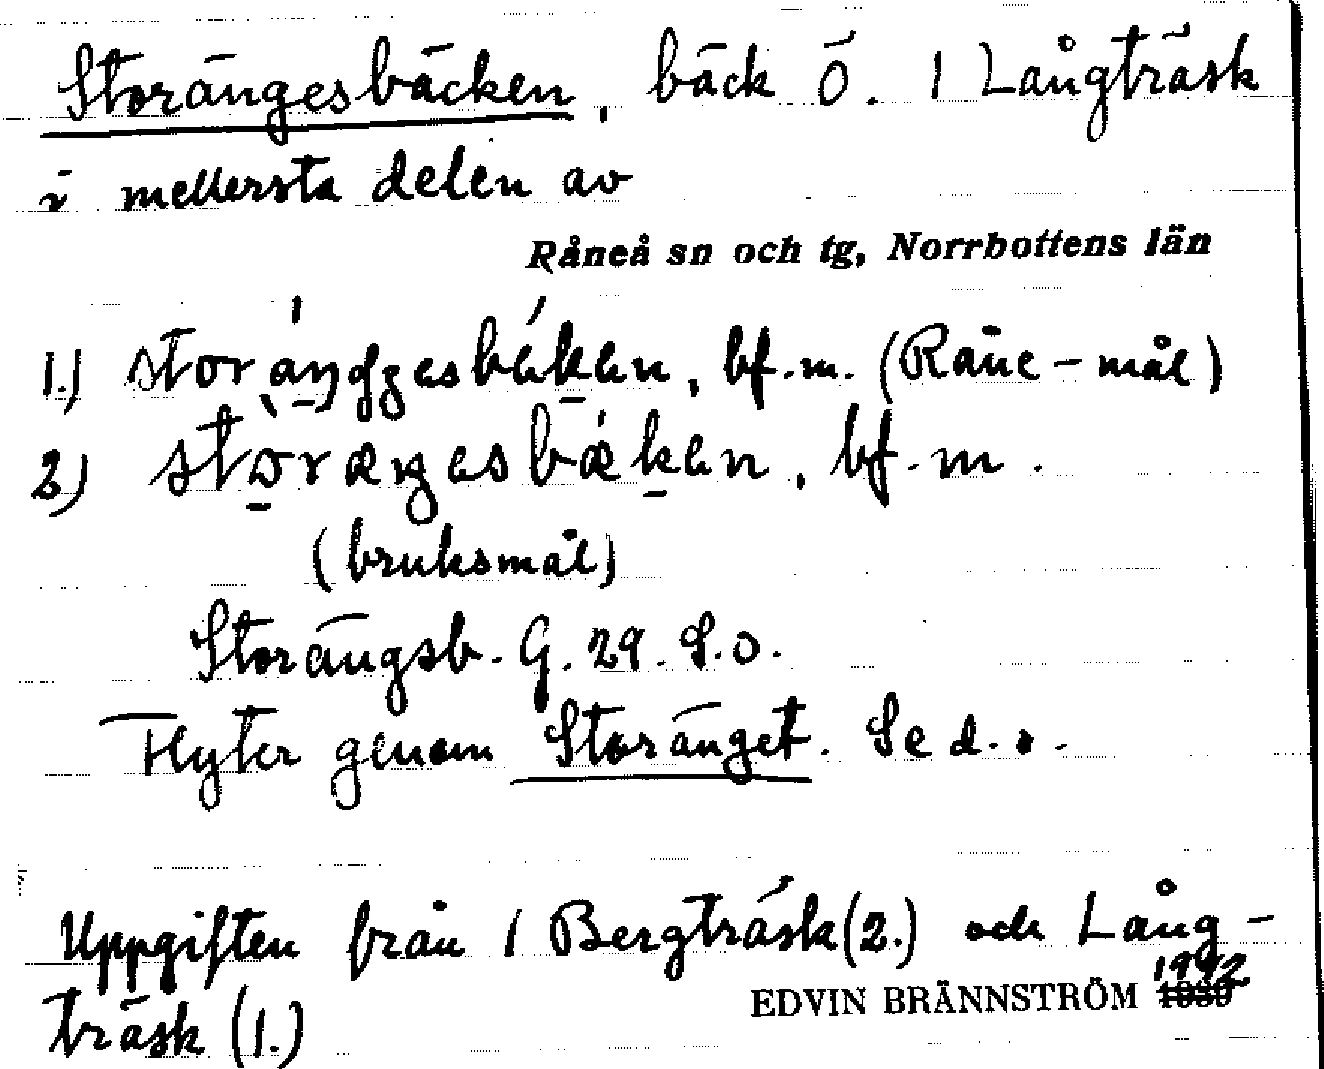 Storängesbäcken, bäck Ö. / Långträsk
i mellersta delen av
Råneå sn och tg, Norrbottens län
1.) bf.m. (Råne-mål)
2.) bf.m.
(bruksmål)
Storängsb. G. 29. S.O.
Flyter genom Storänget. Se d.o.
Uppgiften från / Bergträsk (2.) och Lång-
träsk (1.)
EDVIN BRÄNNSTRÖM 1942